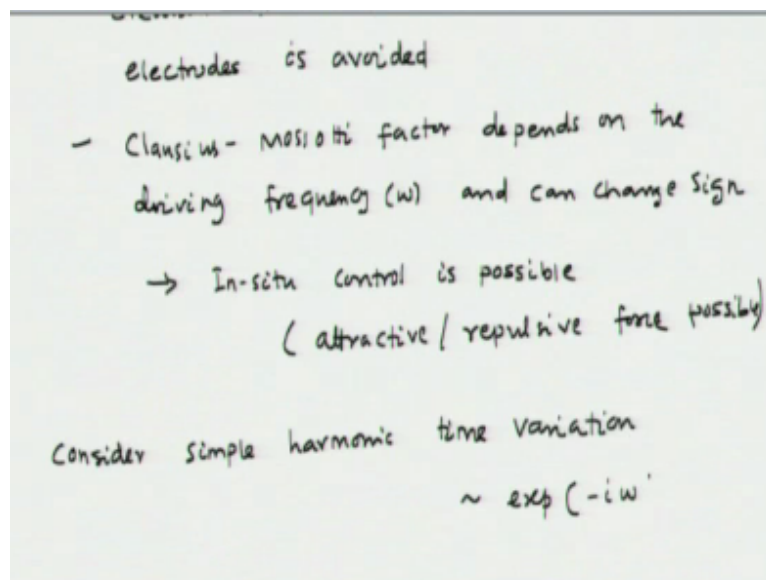 electrodes is avoided
- Clausius- Mosiotti factor depends on the
driving frequency (w) and can change sign
→ In-situ control is possible
( attractive / repulsive force possibly)
Consider simple harmonic time variation
~ exp (-iw